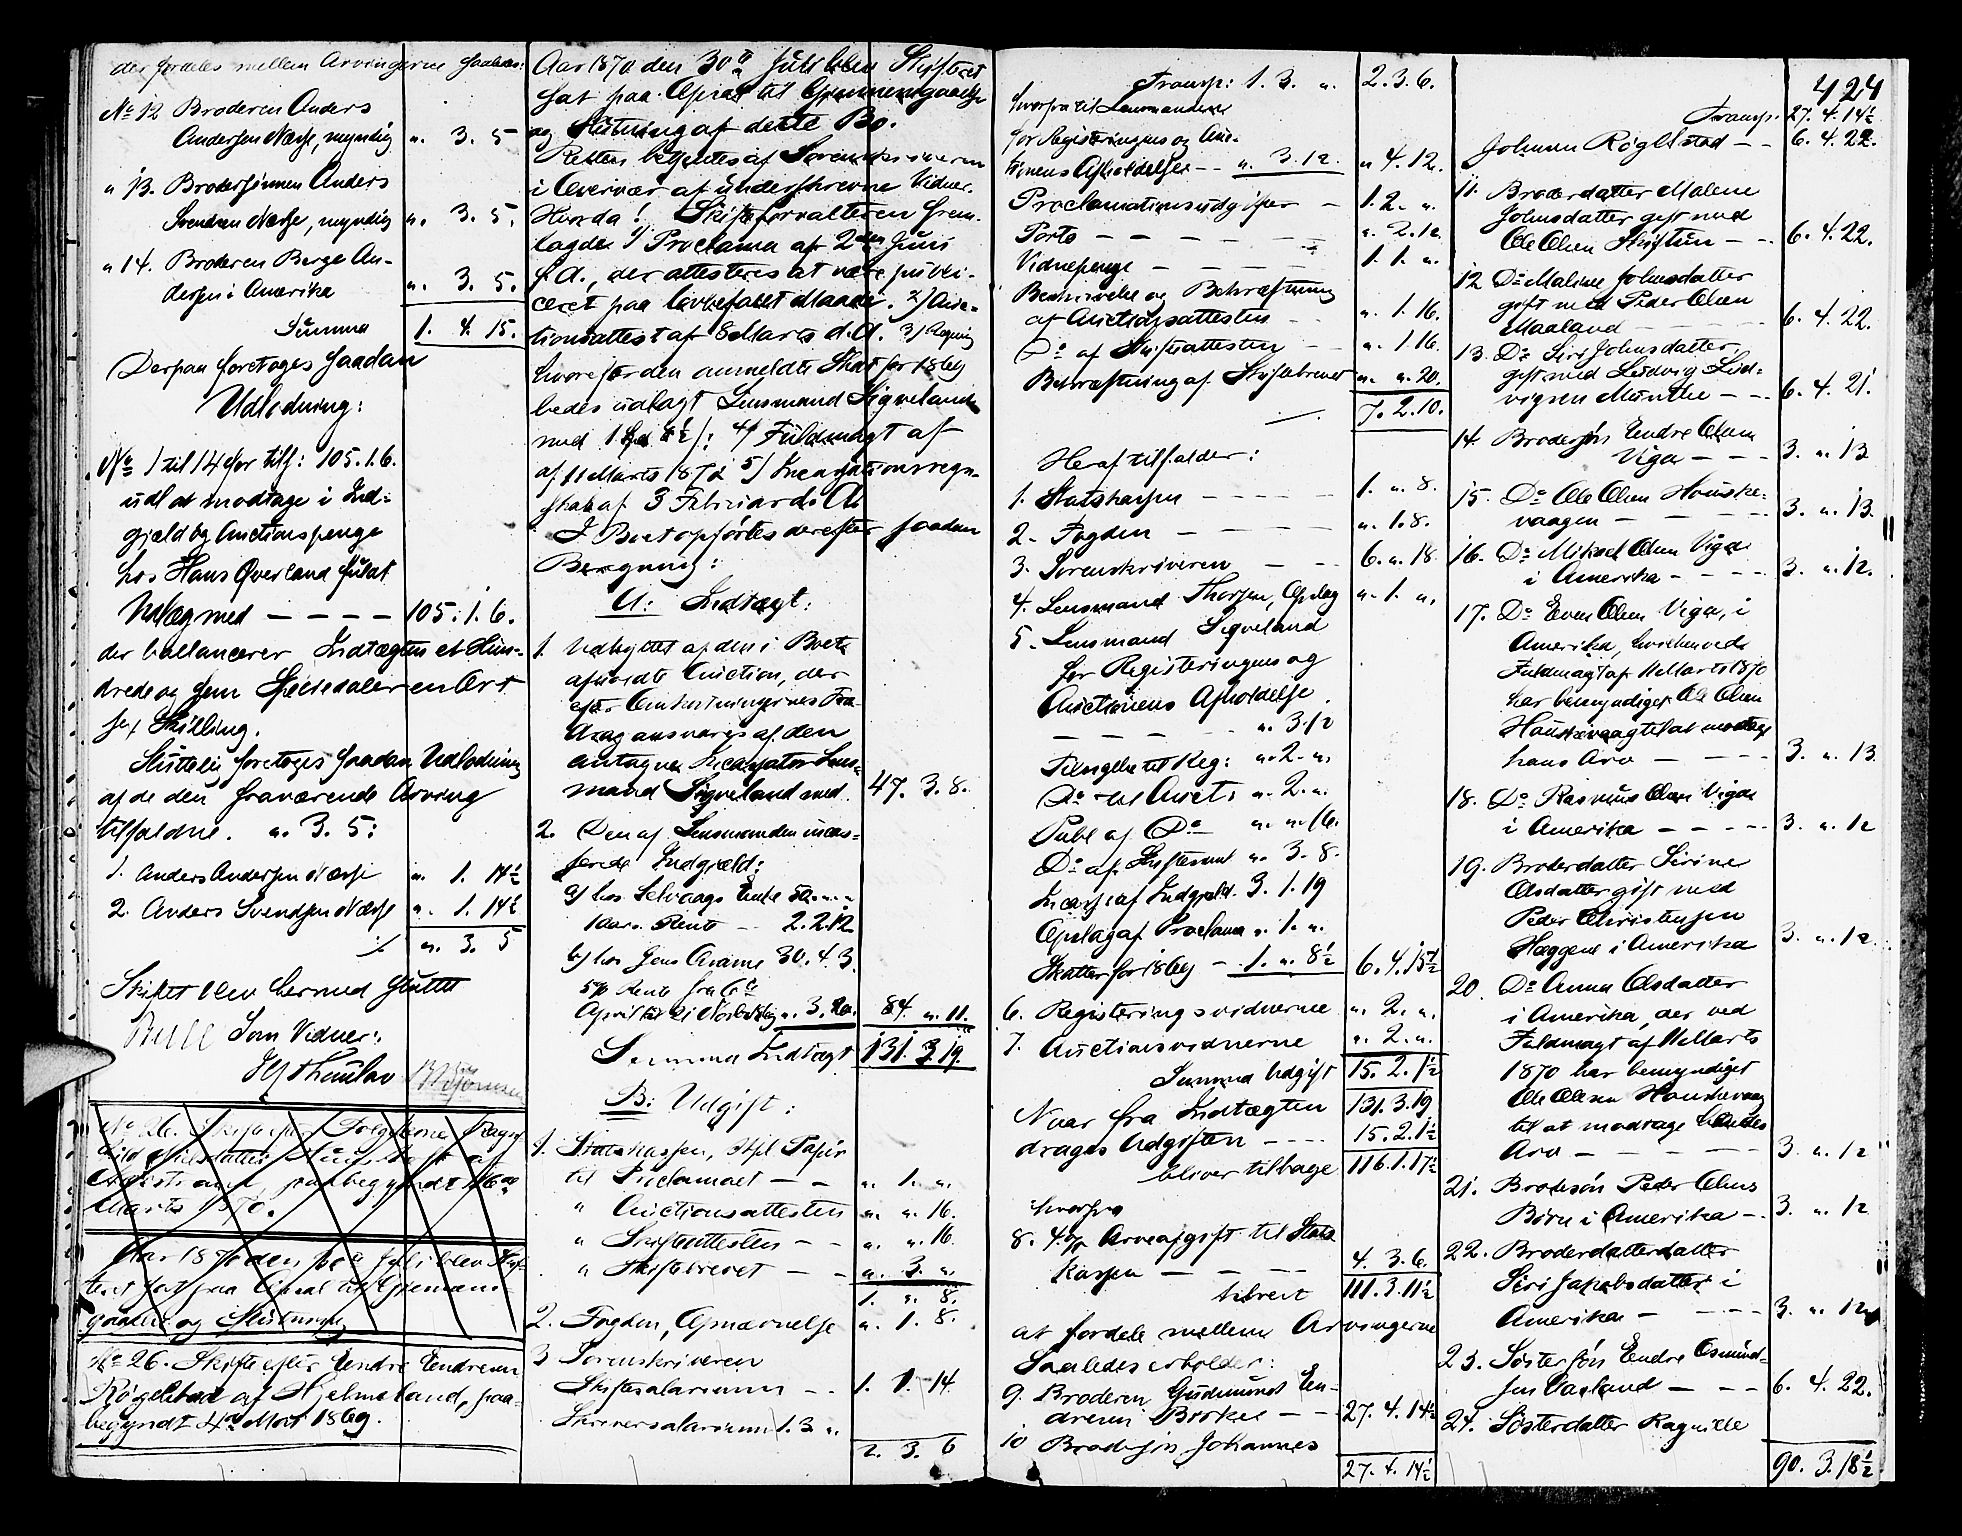 der fordeles mellem Arvingerne saaledes:
No 12 Broderen Anders
Andersen Næsse, myndig " 3. 5
" 13. Brodersønnen Anders
Svendsen Næsse, myndig " 3. 5.
" 14. Broderen Berge An-
dersen i Amerika " 3. 5.
Summa 1. 4. 15.
Derpaa foretoges saadan
Udlodning:
No 1 til 14 for tils: 105.1.6.
udl at modtage i Ind-
gjæld og Auctionspenge
hos Hans Qverland fuldt
Udlæg med - - - - 105.1.6.
der ballancerer Indtægten et Hun-
drede og fem Speciedaler en Ort
sex Skilling.
Sluttelig foretoges saadan Udlodning
af de den fraværende Arving
tilfaldne " 3. 5:
1. Anders Andersen Næsse " 1. 14½
2. Anders Svendsen Næsse " 1. 14½
" 3. 5
Skiftet blev hermed sluttet
Bull Som Vidner:
No 26. Skifte efter
Marts 1870.
Aar 1870 den Juli blev Skif-
tet sat paa Apsal til Gjennem-
gaaelse og Slutning
No 26. Skifte efter Endre Endresen
Røgelstad af Hjelmeland, paa-
begyndt 4de Mai 1869.
Aar 1870 den 30te Juli blev Skifteret
sat paa Apsal til Gjennemgaaelse
og Slutning af dette Bo.
Retten betjentes af Sorenskriveren
i Overvær af underskrevne Vidner.
Hvorda! Skifteforvalteren frem-
lagde 1) Proclama af 2den Juni
f.A., der attesteres at være publi-
ceret paa lovbefalet Maade. 2) Auc-
tionsattest af 8 Marts d.A. 3) Regning
hvorefter den anmeldte Skat for 1869
bedes udlagt Lensmand Sigveland
med 1 Spd 8½ s: 4) Fuldmagt af
af 11 Marts 1870 5) Incassationsregn-
skab af 3 Februar d. A.
I Boet opførtes derefter saadan
Beregning:
A: Indtægt:
1. Udbyttet af den i Boet
afholdte Auction, der
efter Omkostningernes Fra-
drag ansvares af den
antagne Incassator Lens-
mand Sigveland med 47. 3. 8.
2. Den af Lensmanden incas-
serede Indgjæld:
a) hos Selvaags Enke 50. " "
1 aars Rente - 2.2.12
b) hos Jens Aarane 30. 4. 3.
5% Rente fra 6te
April til 21 " 3. 20. 84. " 11.
Summa Indtægt 131. 3. 19.
B: Udgift:
1. Statskassen, stpl Papir
til Proclamaet - - " 1. "
" Auctionsattesten " " 16.
" Skifteattesten - - " " 16.
" Skiftebrevet - - " 3. "
1. " 8.
2. Fogden, Apnævnelse " 1. 8.
3 Sorenskriveren
Skiftesalarium - - 1. 1. 14.
Skriversalarium 1.3 "
2. 3. 6
Transp: 1. 3. " 2. 3. 6.
hvorfra til Lensmanden
for Registeringens og Auc-
tionens Afholdelse - - " 3. 12. " 4. 12.
Proclamationsudgifter - 1. 2. "
Porto - - - - - - " 2. 12
Vidnepenge - - - - 1. 1. "
Beskrivelse og Bekræftning
af Auctionsattesten - - " 1. 16.
Do af Skifteattesten - - " 1. 16.
Bekræftning af Skiftebrevet " " 20.
7. 2. 10.
Heraf tilfalder:
1. Statskassen - - - - - 1. " 8.
2. Fogden - - - - - " 1. 8.
3. Sorenskriveren - - - 6. " 18
4. Lensmand Thorsen, Opslag " 1. "
5. Lensmand Sigveland
for Registeringens og
Auctionens Afholdelse
- - - - - " 3. 12
Tilsigelse til Reg: " 2. "
Do til Auct: " 2. "
Publ af Do " " 16.
Do af Skiftesaml " 3. 8.
Incass af Indgjæld 3. 1. 19
Opslag af Proclama " 1. "
Skatter for 1869 - 1. " 8½ 6. 4. 15½
6. Registeringsvidnerne " 2. "
7. Auctionsvidnerne " 2. "
Summa Udgift 15. 2. 1½
Naar fra Indtægten 131. 3. 19
drages Udgiften - - - - 15. 2. 1½
bliver tilbage 116. 1. 17½
hvorfra
8. 4% Arveafgift til Stats-
kassen - - - - 4. 3. 6.
tilrest 111. 3. 11½
at fordele mellem Arvingerne
Saaledes erholder:
9. Broderen Gudmund En-
dresen - - 27. 4. 14½
10 Brodersøn Johannes
27. 4. 14½
424
Transp. 27. 4. 14½
Johnsen Røgelstad - - 6. 4. 22.
11. Broderdatter Malene
Johnsdatter gift med
Ole Olsen Skiftun - - 6. 4. 22.
12 Do Maline Johnsdatter
gift med Peder Olsen
Maaland - - - - - 6. 4. 22.
13. Do Siri Johnsdatter
gift med Ludvig Lud-
vigsen Munthe - - 6. 4. 21.
14. Brodersøn Endre Olsen
Viga - - - - 3. " 13
15. Do Ole Olsen Houske-
vaagen - - - - - 3. " 13.
16. Do Mikael Olsen Viga
i Amerika - - - - 3. " 12.
17. Do Even Olsen Viga, i
Amerika, hvilken ved
Fuldmagt af 11 Marts 1870
har bemyndiget Ole Olsen
Houskevaag til at modtage
hans Arv - - - - 3. " 13
18. Do Rasmus Olsen Viga
i Amerika - - - - 3. " 12
19. Broderdatter Sirine
Olsdatter gift med
Peder Christensen
Heggene i Amerika 3. " 12.
20. Do Anna Olsdatter
i Amerika, der ved
Fuldmagt af 11 Marts
1870 har bemyndiget
Ole Olsen Houskevaag
til at modtage hendes
Arv - - - - - - 3. " 12
21. Brodersøn Peder Olsens
Børn i Amerika - 3. " 12
22. Broderdatterdatter
Siri Jakobsdatter i
Amerika - - - - 3. " 12
23. Søstersøn Endre Osmund-
sen Vadland - - - 6. 4. 22.
24. Søsterdatter Ragnilde
90. 3. 18½